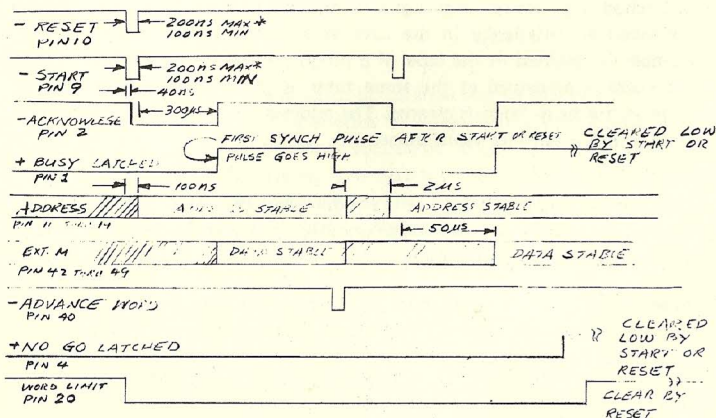 - RESET
PIN 10
200ns MAX*
100ns MIN
- START
PIN 9
200ns MAX*
100ns MIN
40ns
-ACKNOWLEGE
PIN 2
300µs
FIRST SYNCH PULSE AFTER START OR RESET
PULSE GOES HIGH
CLEARED LOW
BY START OR
RESET
+ BUSY LATCHED
PIN 1
100ns
2µs
ADDRESS
PIN 11 THRU 14
STABLE
ADDRESS STABLE
50µs
EXT. M
PIN 42 THRU 49
DATA STABLE
DATA STABLE
-ADVANCE WORD
PIN 40
+NO GO LATCHED
PIN 4
CLEARED
LOW BY
START OR
RESET
WORD LIMIT
PIN 20
CLEAR BY
RESET